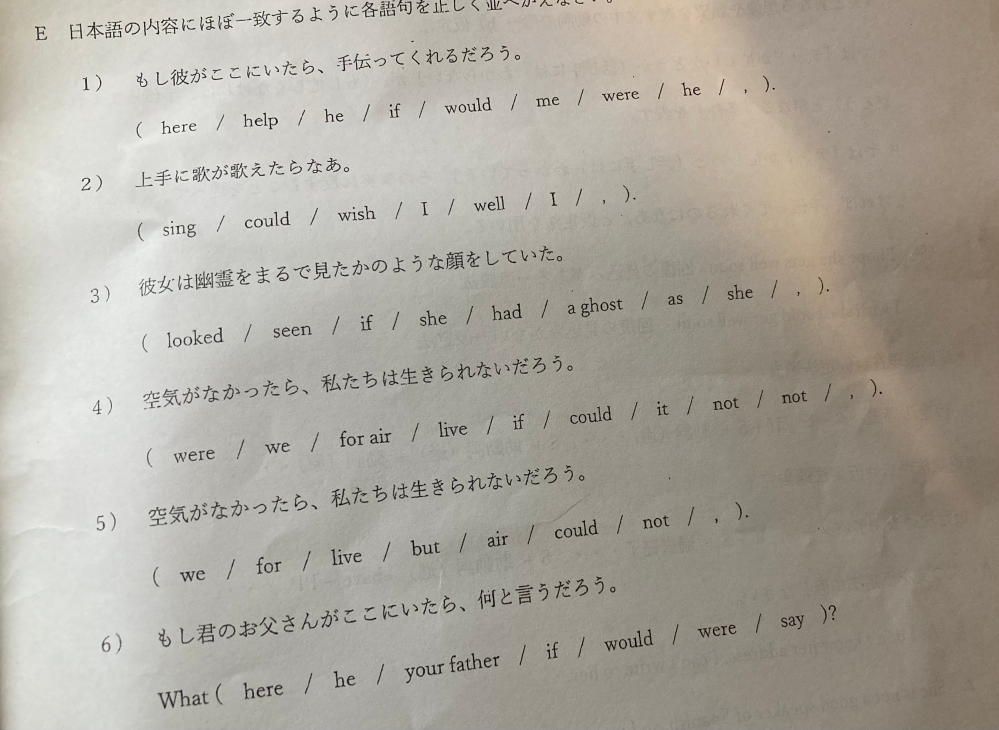 E 日本語の内容にほぼ一致するように各語句を正しく並べかえなさい。
1) もし彼がここにいたら、手伝ってくれるだろう。
( here / help / he / if / would / me / were / he / , ).
2) 上手に歌が歌えたらなあ。
( sing / could / wish / I / well / I / , ).
3) 彼女は幽霊をまるで見たかのような顔をしていた。
( looked / seen / if / she / had / a ghost / as / she / , ).
4) 空気がなかったら、私たちは生きられないだろう。
( were / we / for air / live / if / could / it / not / not / , ).
5) 空気がなかったら、私たちは生きられないだろう。
( we / for / live / but / air / could / not / , ).
6) もし君のお父さんがここにいたら、何と言うだろう。
What ( here / he / your father / if / would / were / say )?